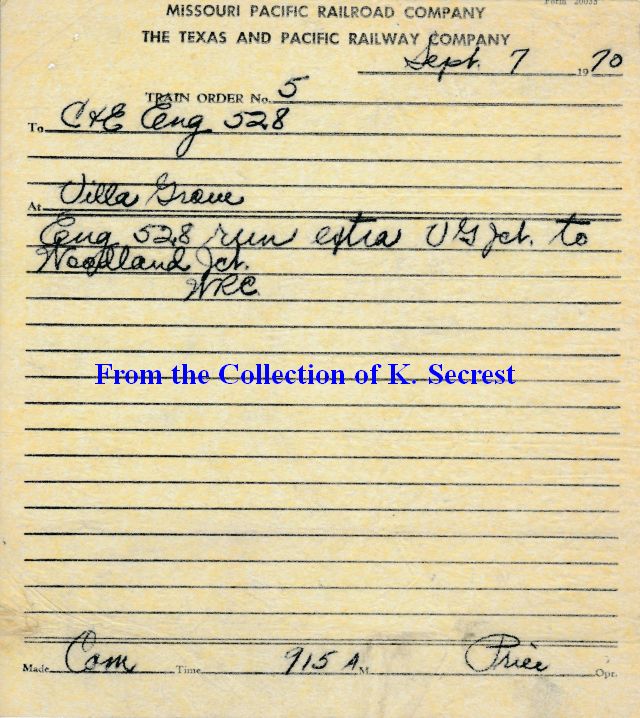 Form 20033
MISSOURI PACIFIC RAILROAD COMPANY
THE TEXAS AND PACIFIC RAILWAY COMPANY
Sept. 7 1970
TRAIN ORDER No. 5
To C&E Eng 528
At Villa Grove
Eng 528 run extra V G Jct. to
Woodland Jct.
WRC
From the Collection of K. Secrest
Made Com Time 915 A M. Price Opr.